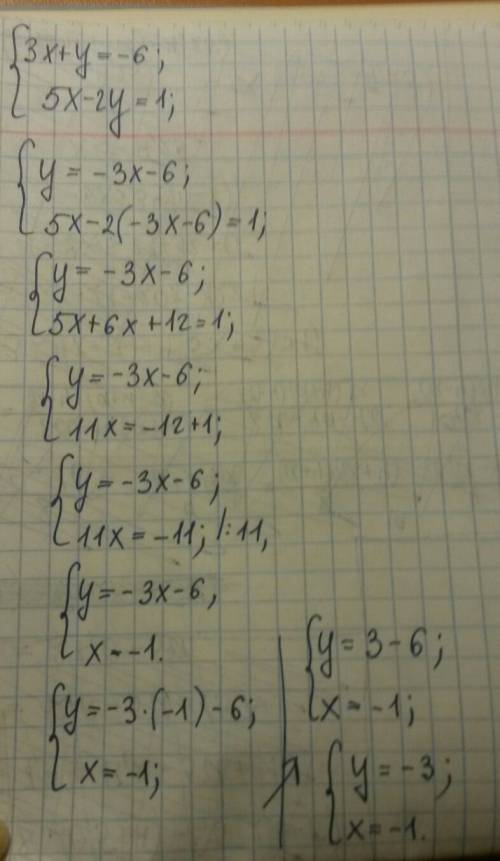 3x+y=-6;
5x-2y=1;
y=-3x-6;
5x-2(-3x-6)=1;
y=-3x-6;
5x+6x+12=1;
y=-3x-6;
11x=-12+1;
y=-3x-6;
11x=-11; |:11,
y=-3x-6,
x=-1.
y=-3·(-1)-6;
x=-1;
y=3-6;
x=-1;
y=-3;
x=-1.